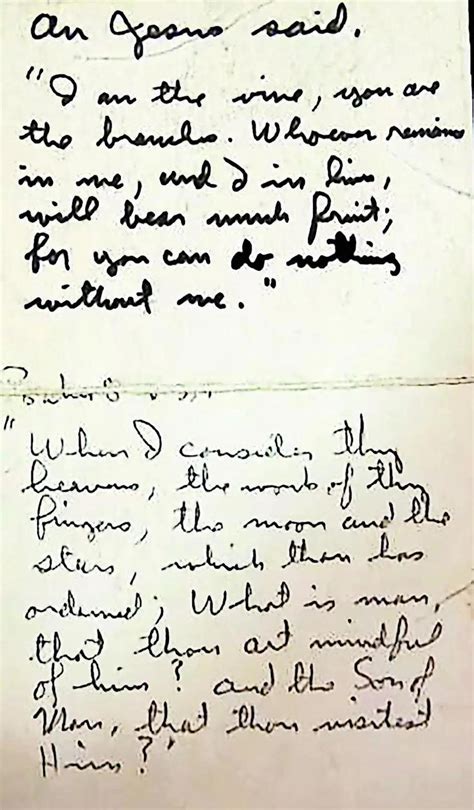 As Jesus said.
"I am the vine, you are
the branches. Whoever remains
in me, and I in him,
will bear much fruit;
for you can do nothing
without me."
"When I consider thy
heavens, the work of thy
fingers, the moon and the
stars, which thou has
ordained; What is man,
that thou art mindful
of him? and the Son of
Man, that thou visitest
Him?"